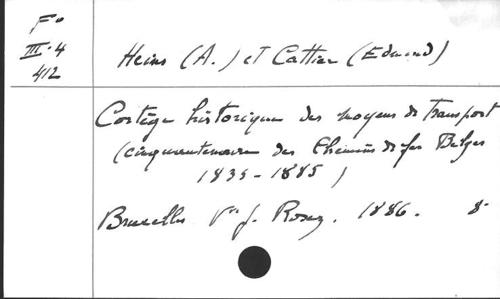 Fº
III·4
412
Heins (A.) et Cattier (Edmond)
Cortège historique des moyens de Transport
(cinquantenaire des Chemins de fer Belges
1835-1885)
Bruxelles Vve J. Rozez. 1886. 8º